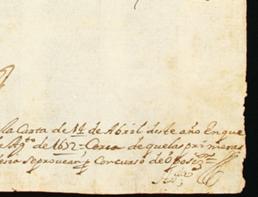 la Carta de 14 de Abril deste año En que
de Agto de 1652 - Cerca de que las primeras
se provean p Concurso de oposizn